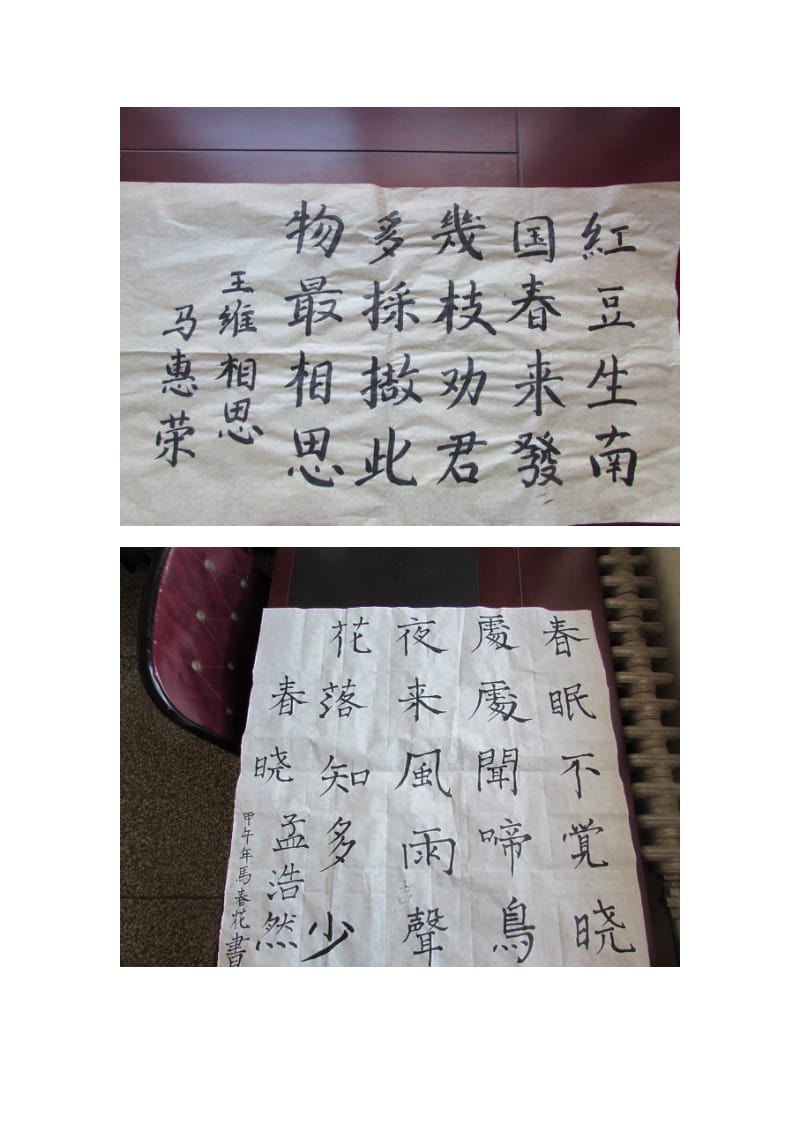 紅豆生南
国春来發
幾枝劝君
多採擷此
物最相思
王維相思
马惠荣
春眠不覚晓
處處聞啼鳥
夜来風雨聲
花落知多少
春晓孟浩然
甲午年馬春花書